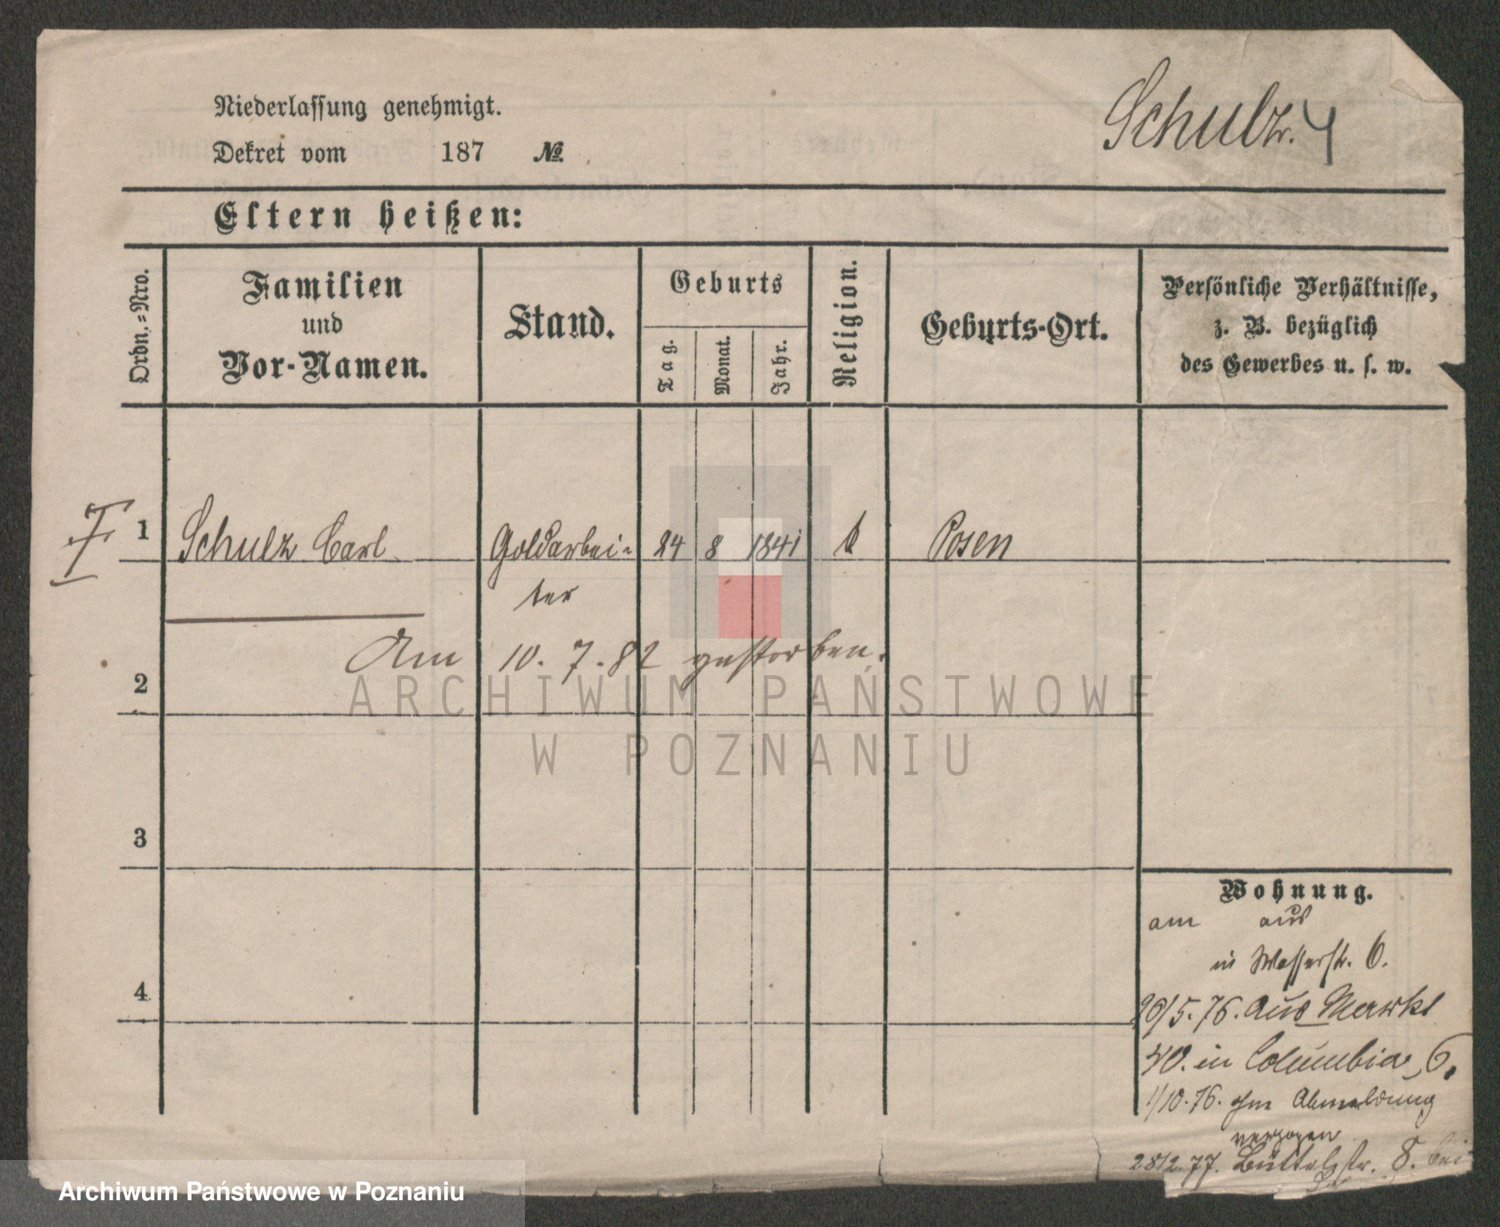 Schulz. 4
Niederlassung genehmigt.
Dekret vom 187 №
Eltern heißen:
Ordn.-Nro.
Familien
und
Vor-Namen.
Stand.
Geburts
Tag.
Monat.
Jahr.
Religion.
Geburts-Ort.
Persönliche Verhältnisse,
z. B. bezüglich
des Gewerbes u. s. w.
1 Schulz Carl Goldarbei- 24 8 1841 Posen
ter
Am 10. 7. 82 gestorben.
2
3
4
Wohnung.
am aus
in Wasserstr. 6.
26/5. 76. aus Markt
40. in Columbia 6.
1/10. 76. ohn Abmeldung
verzogen
28/2 77. Büttelstr. 8. bei
ARCHIWUM PAŃSTWOWE
W POZNANIU
Archiwum Państwowe w Poznaniu